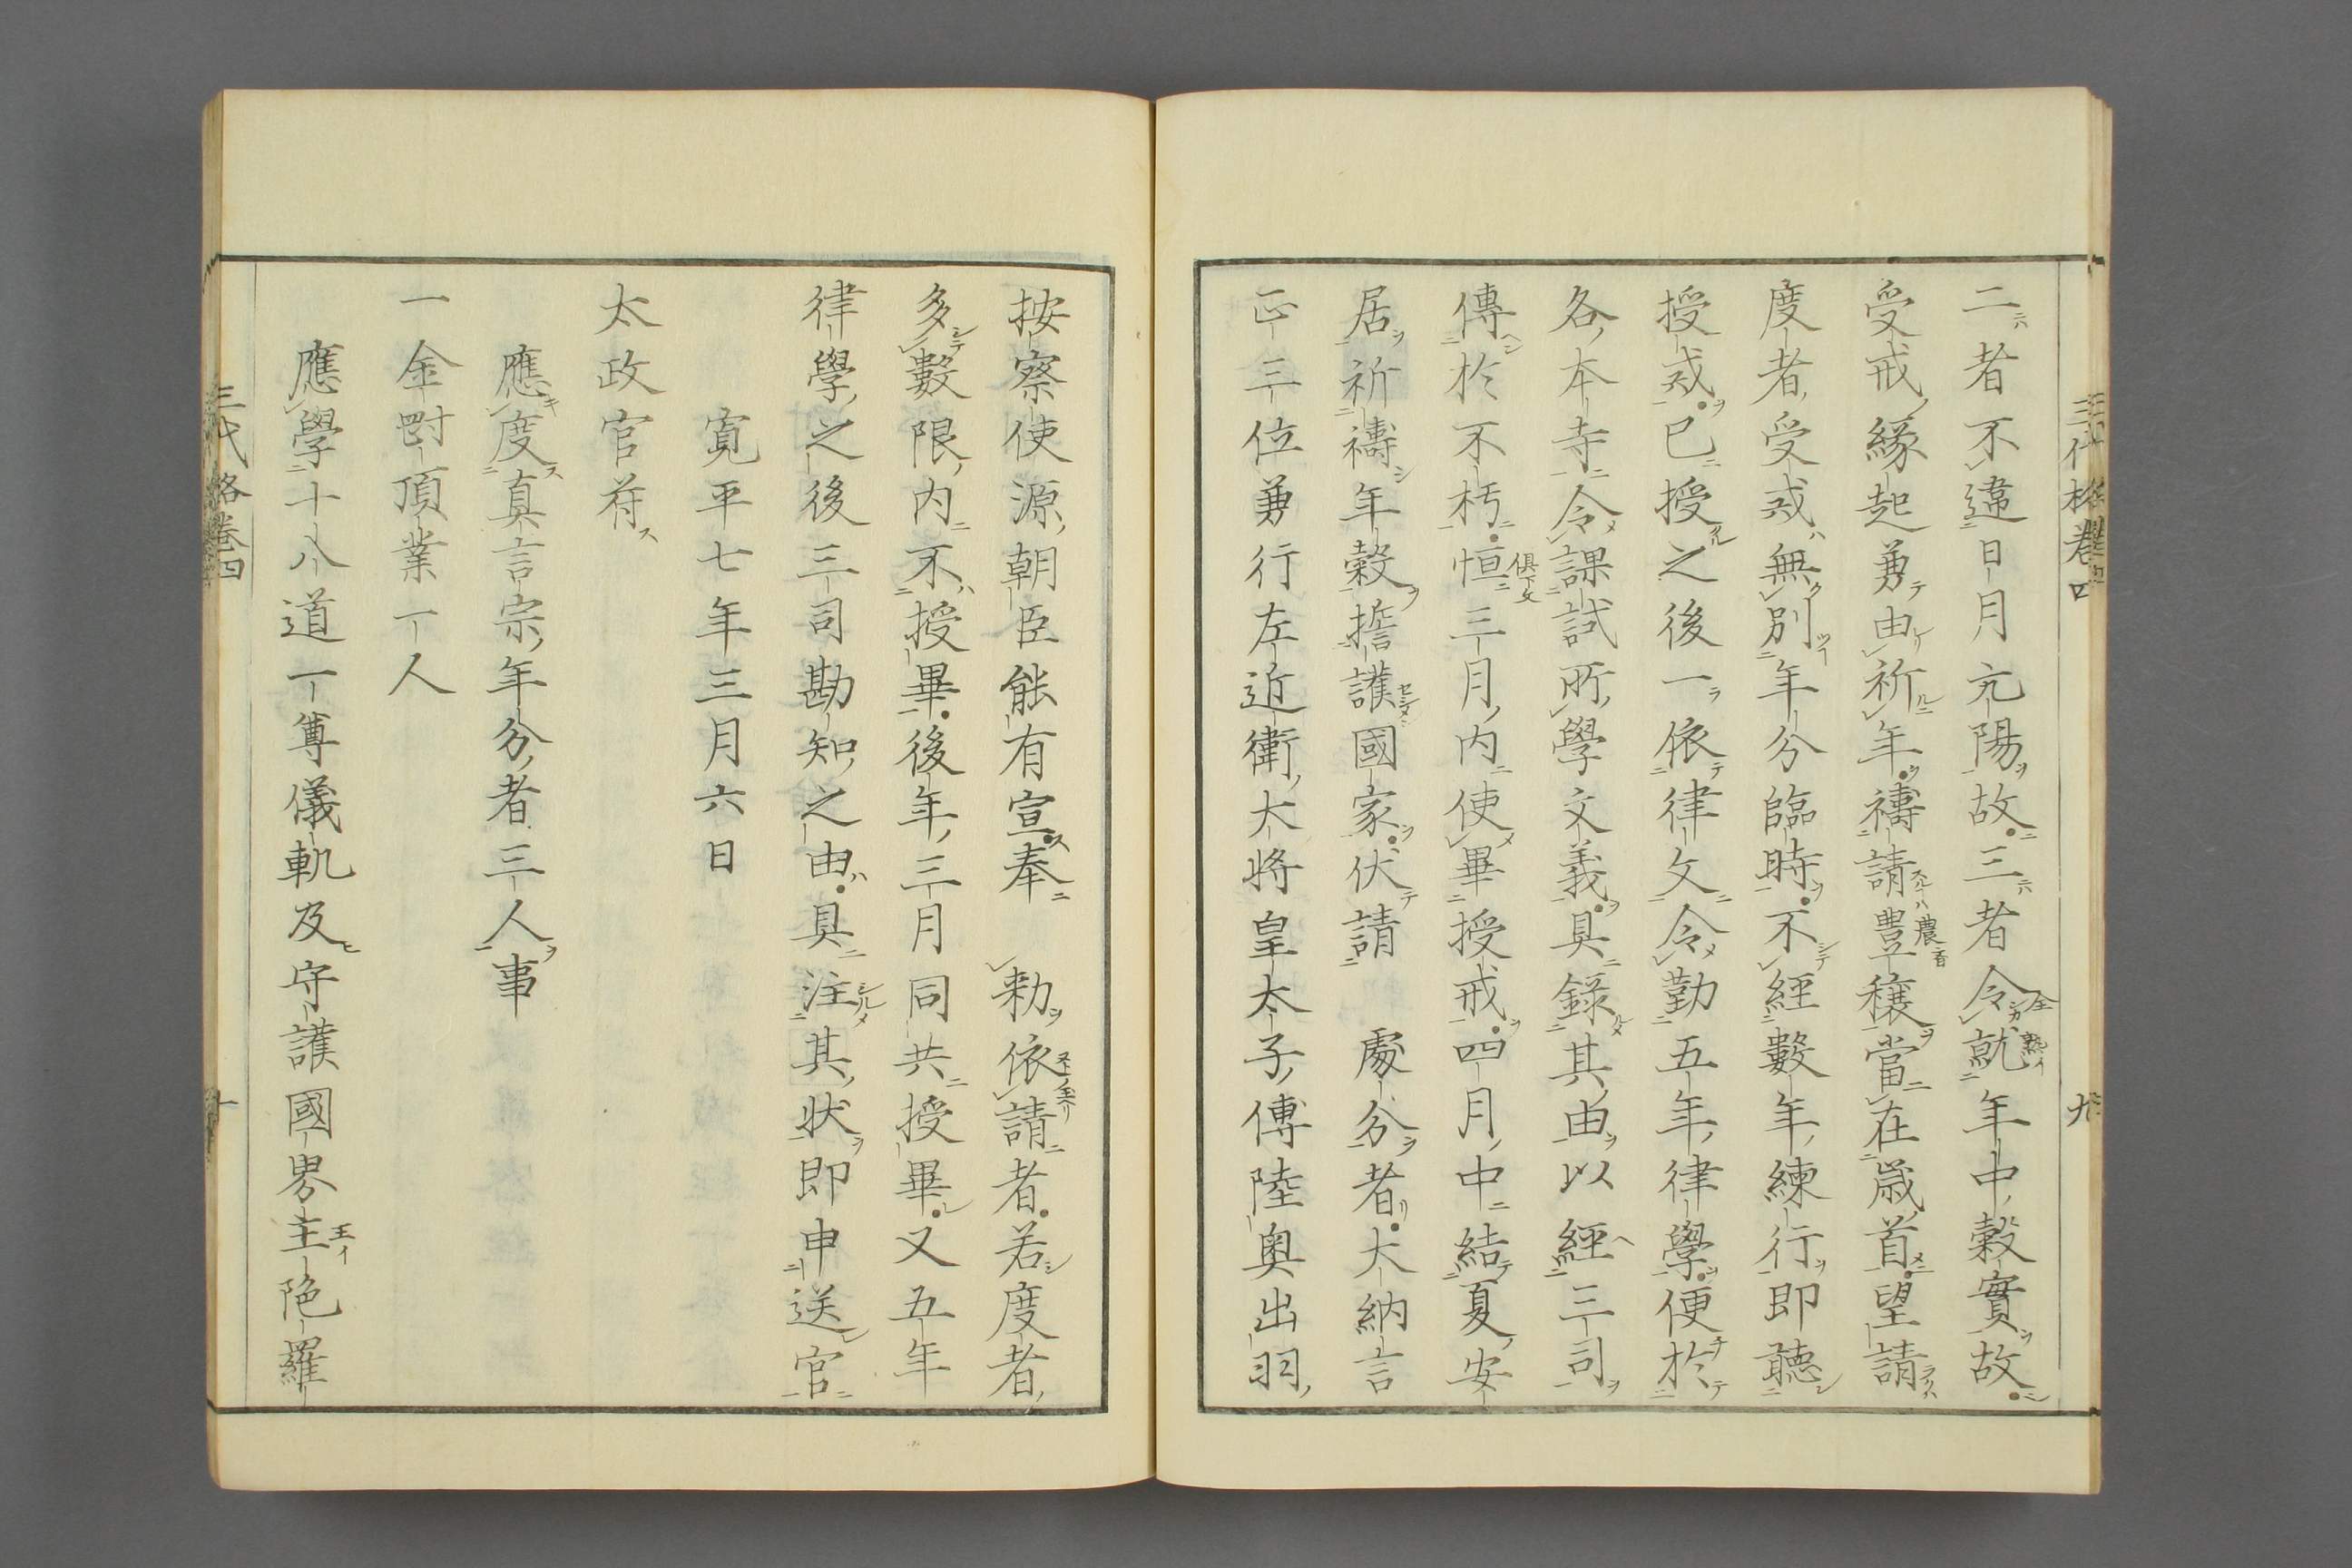 三代格卷四 九
二者不違日月亢陽故三者令就年中穀實故
受戒縁起兼由祈年禱請豊穰當在歳首望請
度者受戒無別年分臨時不經數年練行即聽
授戒已授之後一依律文令勤五年律學便於
各本寺令課試所學文義具録其由以經三司
傳於不朽恒三月内使畢授戒四月中結夏安
居祈禱年穀擔護國家伏請 處分者大納言
正三位兼行左近衛大将皇太子傅陸奥出羽
按察使源朝臣能有宣奉 勅依請者若度者
多數限内不授畢後年三月同共授畢又五年
律學之後三司勘知之由具注其状即申送官
寛平七年三月六日
太政官符
應度真言宗年分者三人事
一金剛頂業一人
應學十八道一尊儀軌及守護國界主陁羅
三代格卷四 十